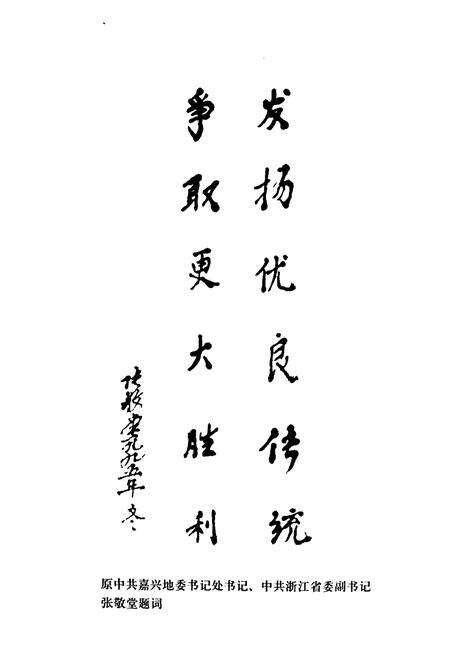 发扬优良传统
爭取更大胜利
张敬堂一九九五年冬
原中共嘉兴地委书记处书记、中共浙江省委副书记
张敬堂题词